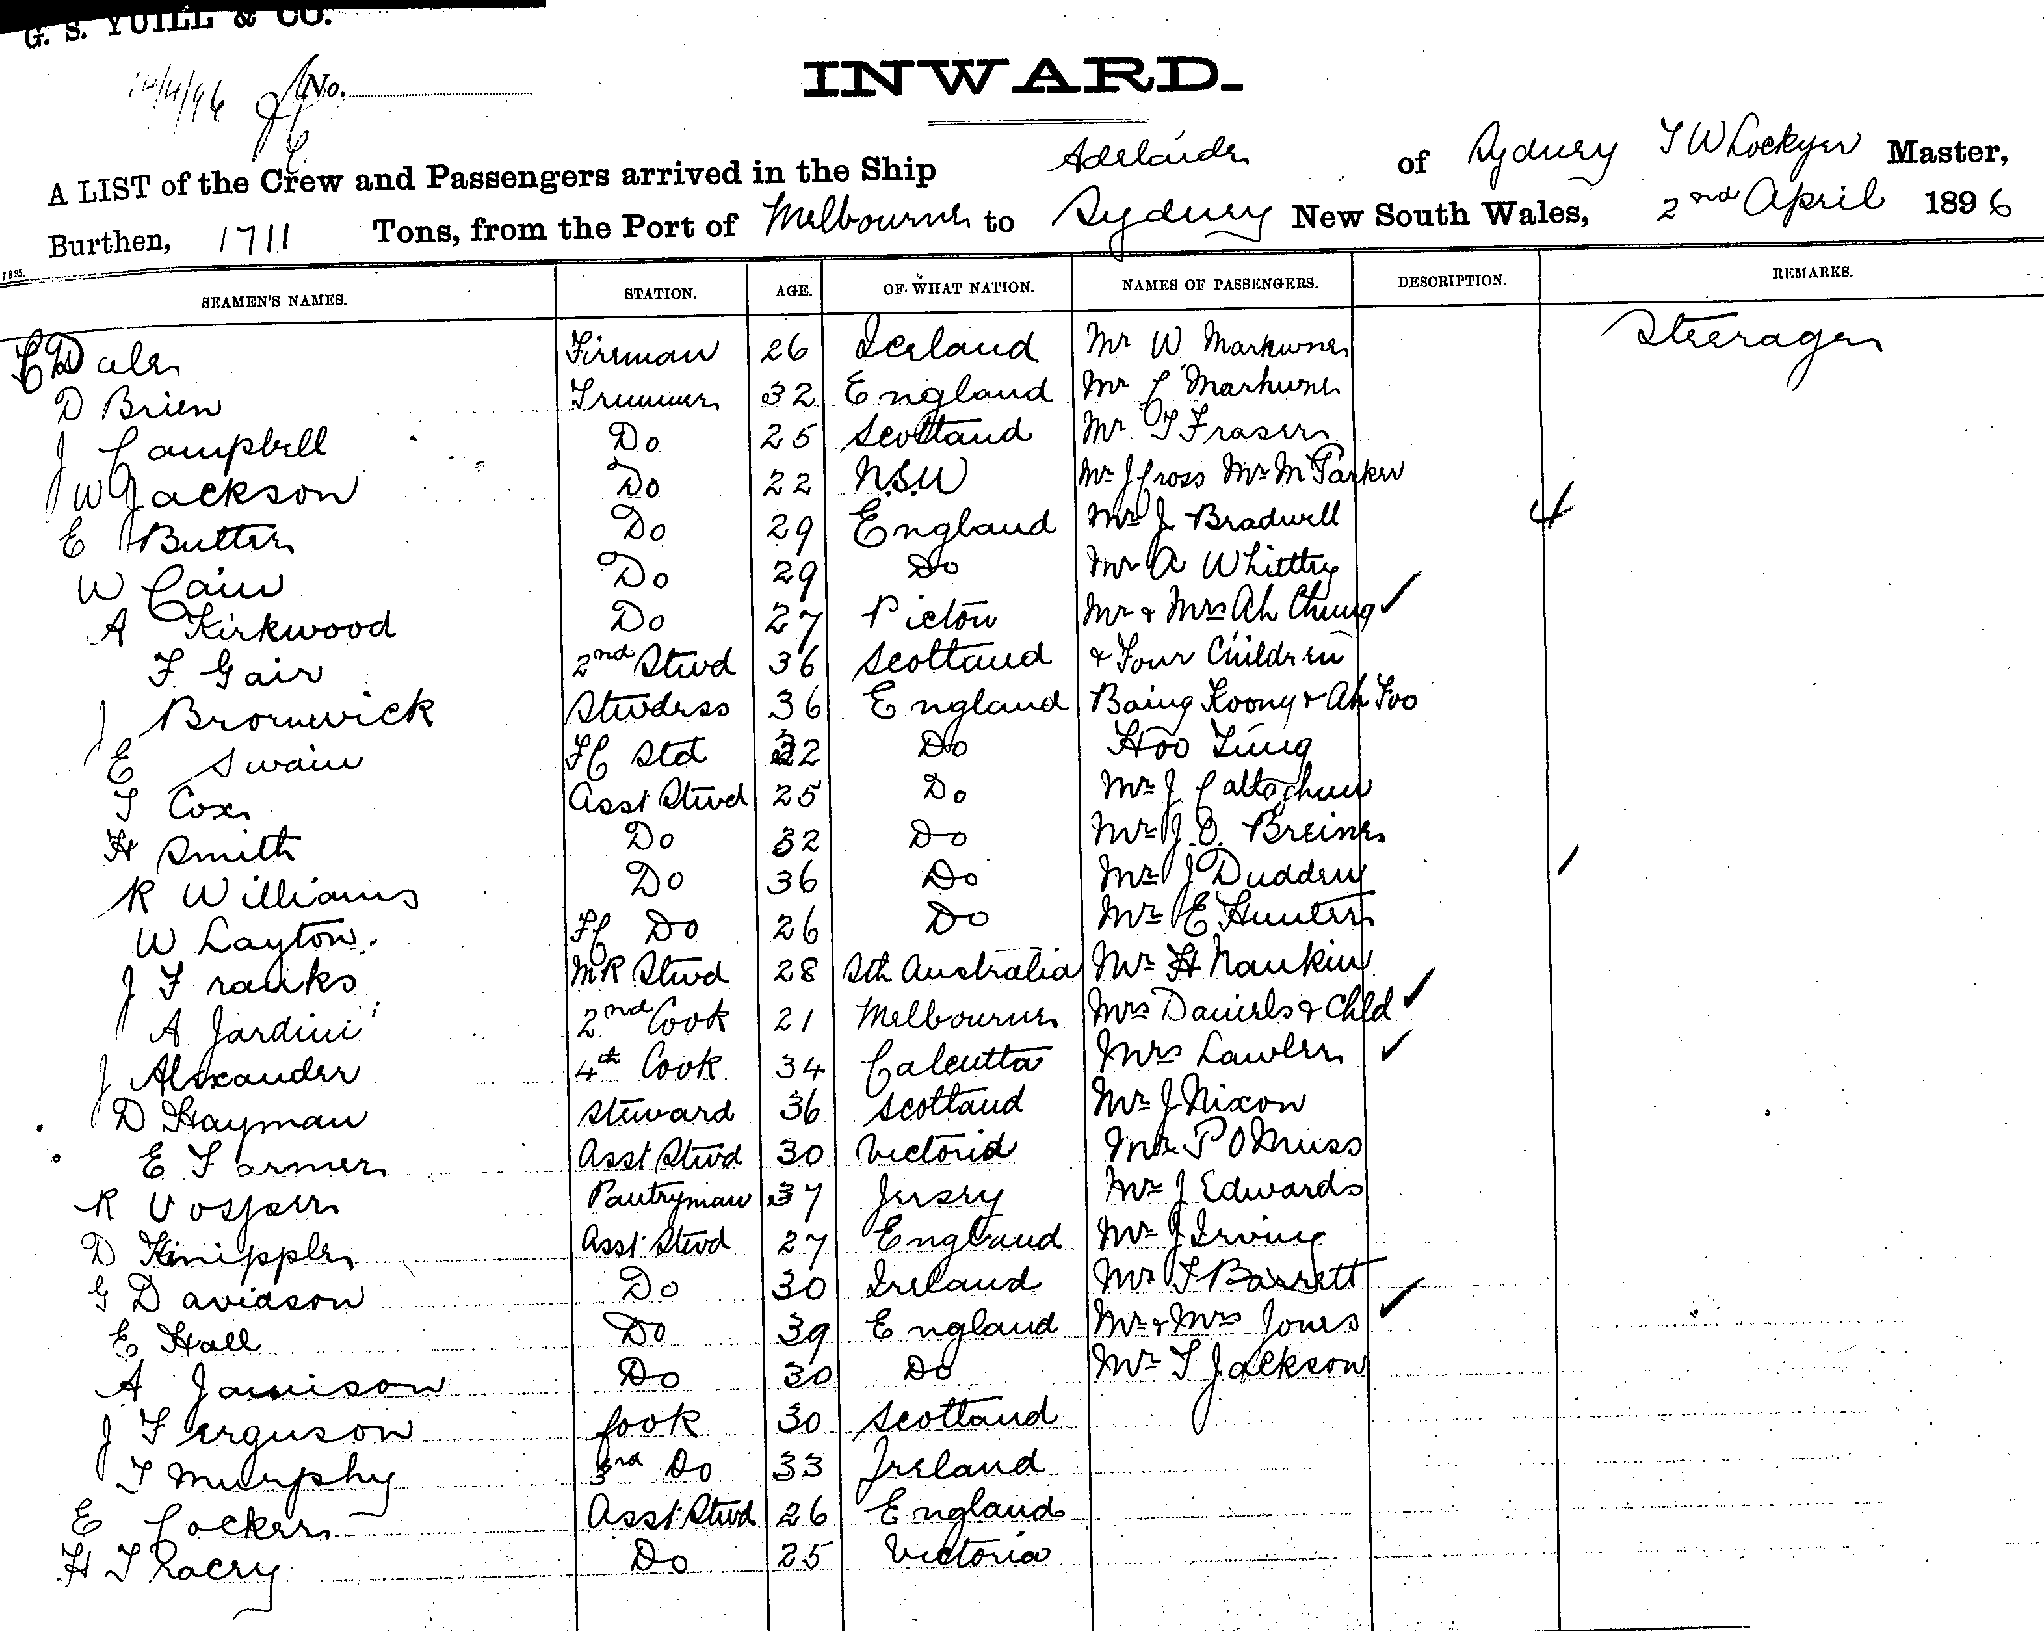 G. S. YUILL & CO.
No.
INWARD.
A LIST of the Crew and Passengers arrived in the Ship Adelaide of Sydney T W Lockyer Master,
Burthen, 1711 Tons, from the Port of Melbourne to Sydney New South Wales, 2nd April 1896
SEAMEN'S NAMES. STATION. AGE. OF WHAT NATION. NAMES OF PASSENGERS. DESCRIPTION. REMARKS.
Dale Fireman 26 Iceland Mr W Markwne Steerage
D Brien Trimmer 32 England Mr C Markwne
J Campbell Do 25 Scotland Mr T Fraser
W Jackson Do 22 N.S.W Mr J Cross Mr M Parker
E Butter Do 29 England Mr J Bradwell
W Cain Do 29 Do Mr A Whittey
A Kirkwood Do 27 Picton Mr & Mrs Ah Chung
F Gair 2nd Stwd 36 Scotland & Four Children
J Bromwick Stwdess 36 England Baing Koong & Ah Foo
E Swain FC Std 32 Do Hoo Ling
T Cox Asst Stwd 25 Do Mr J Callaghan
H Smith Do 32 Do Mr J.O. Breine
R Williams Do 36 Do Mr J Duddey
W Layton. FC Do 26 Do Mr E Hunter
J Franks MR Stwd 28 Sth Australia Mr H Nankin
A Jardini 2nd Cook 21 Melbourne Mrs Daniels & Chld
J Alexander 4th Cook 34 Calcutta Mrs Lawler
D Hayman Steward 36 Scotland Mr J Nixon
E Farmer Asst Stwd 30 Victoria Mr P O Muss
R Vosper Pantryman 37 Jersey Mr J Edwards
D Knipple Asst Stwd 27 England Mr J Irving
G Davidson Do 30 Ireland Mr F Barrett
E Hall Do 39 England Mr & Mrs Jones
A Jamison Do 30 Do Mr T Jackson
J Ferguson Cook 30 Scotland
T Murphy 3rd Do 33 Ireland
E Cocker Asst Stwd 26 England
H Tracey Do 25 Victoria